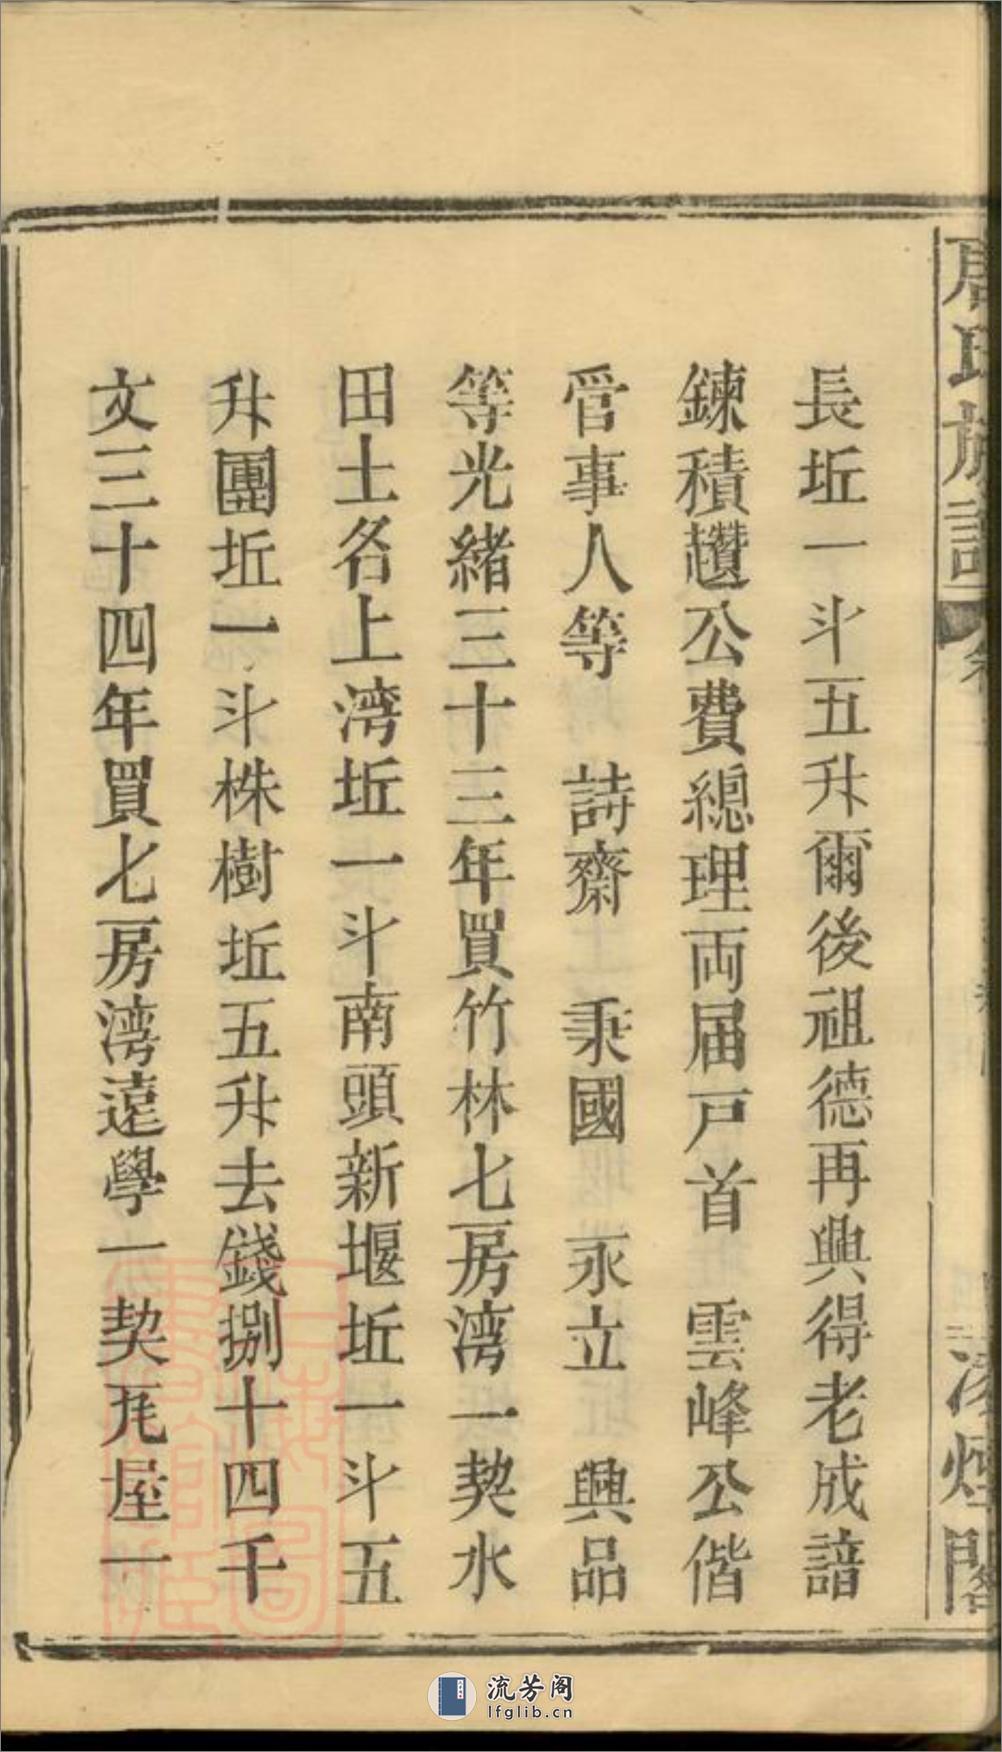 長坵一斗五升爾後祖德再興得老成諳
鍊積趲公費總理両届戸首　雲峰公偕
管事人等　詩齋　秉國　永立　興品
等光緒三十三年買竹林七房湾一契水
田土名上湾坵一斗南頭新堰坵一斗五
升團坵一斗株樹坵五升去錢捌十四千
文三十四年買七房湾遠學一契瓦屋一
凌煙閣
流芳阁
lfglib.cn